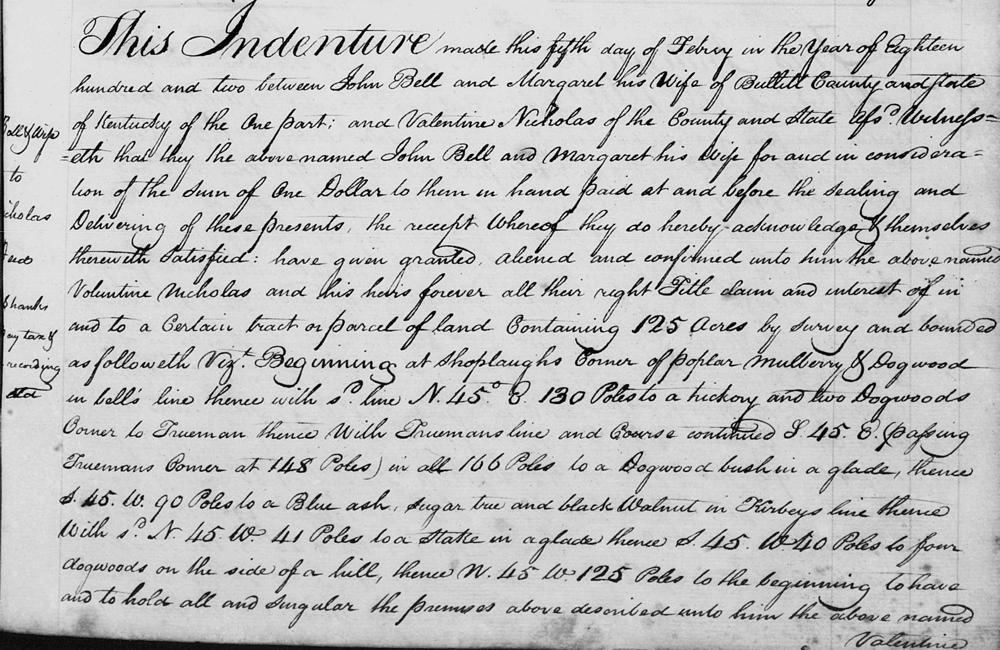 This Indenture made this fifth day of Febry in the Year of Eighteen
hundred and two between John Bell and Margaret his Wife of Bullitt County and State
of Kentucky of the One part; and Valentine Nicholas of the County and State afsd. Witness=
=eth that they the above named John Bell and Margaret his Wife for and in considera=
tion of the Sum of One Dollar to them in hand paid at and before the sealing and
Delivering of these presents, the receipt Whereof they do hereby acknowledge & themselves
therewith Satisfied: have given granted, aliened and confirmed unto him the above named
Valuntine Nicholas and his heirs forever all their right Title claim and interest of in
and to a Certain tract or parcel of land Containing 125 Acres by survey and bounded
as followeth Vizt. Beginning at Shoplaughs Corner of poplar Mulberry & Dogwood
in bells line thence with sd. line N. 45° E. 130 Poles to a hickory and two Dogwoods
Corner to Trueman thence With Truemans line and Course continued S 45. E. (passing
Truemans Corner at 148 Poles) in all 166 Poles to a Dogwood bush in a glade, thence
S. 45. W. 90 Poles to a Blue ash, sugar tree and black Walnut in Kirbeys line thence
With sd. N. 45. W 41 Poles to a Stake in a glade thence S. 45. W 40 Poles to four
dogwoods on the side of a hill, thence N. 45 W. 125 Poles to the beginning to have
and to hold all and Singular the premises above described unto him the above named
Valentine
Bell & Wife
to
icholas
Deed
thanks
pay tax &
recording